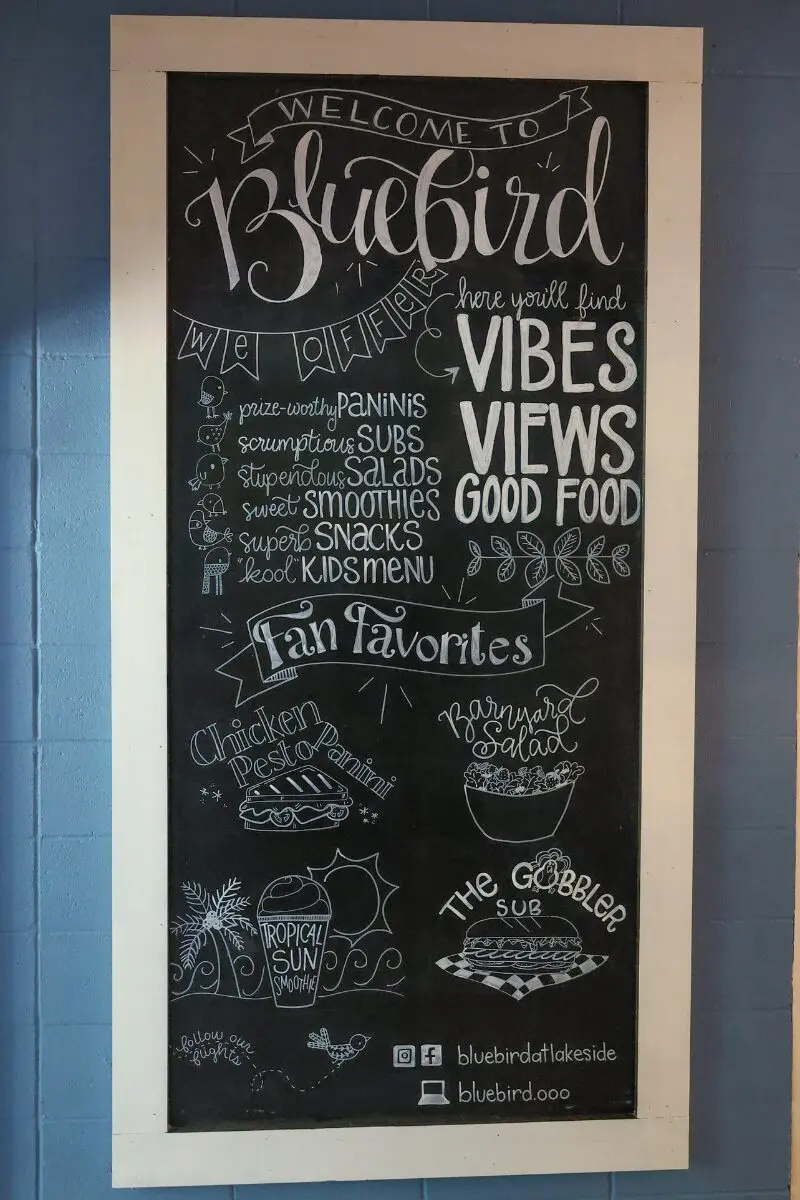 WELCOME TO
Bluebird
WE OFFER
prize-worthy PANINIS
scrumptious SUBS
stupendous SALADS
sweet SMOOTHIES
superb SNACKS
"kool" KIDS MENU
here you'll find
VIBES
VIEWS
GOOD FOOD
Fan Favorites
Chicken
Pesto Panini
Barnyard
Salad
TROPICAL
SUN
SMOOTHIE
THE GOBBLER
SUB
follow our
flights
bluebirdatlakeside
bluebird.ooo